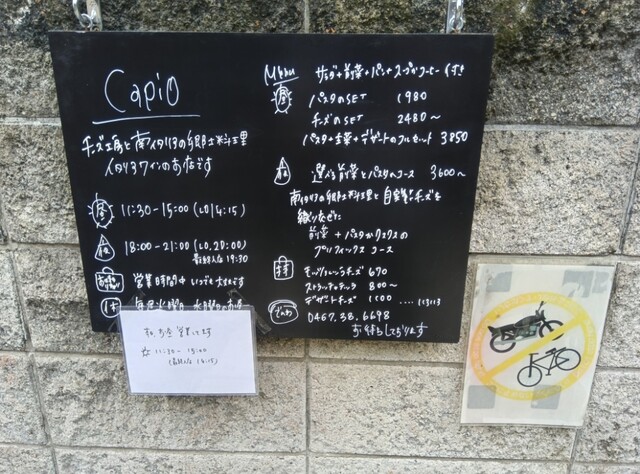 Capio
チーズ工房と南イタリアの郷土料理
イタリアワインのお店です
昼 11:30-15:00 (LO14:15)
夜 18:00-21:00 (LO,20:00)
最終入店 19:30
営業時間中 いつでも大丈夫です
休 毎週火曜日 水曜日の
営業してます
☆ 11:30-15:00
(最終入店 14:15)
Menu
昼
サラダ+前菜+パン+スープかコーヒー 付き
パスタのSET 1980
チーズのSET 2480〜
パスタ+主菜+デザートのフルセット 3850
夜 選べる前菜とパスタのコース 3600〜
南イタリアの郷土料理と自家製チーズを
織りなぜた
前菜 + パスタかリゾットの
プリフィックス コース
持 モッツァレラチーズ 670
ストラッチャテッラ 800〜
デザートチーズ 1100 .... いろいろ
でんわ 0467.38.6698
お待ちしております